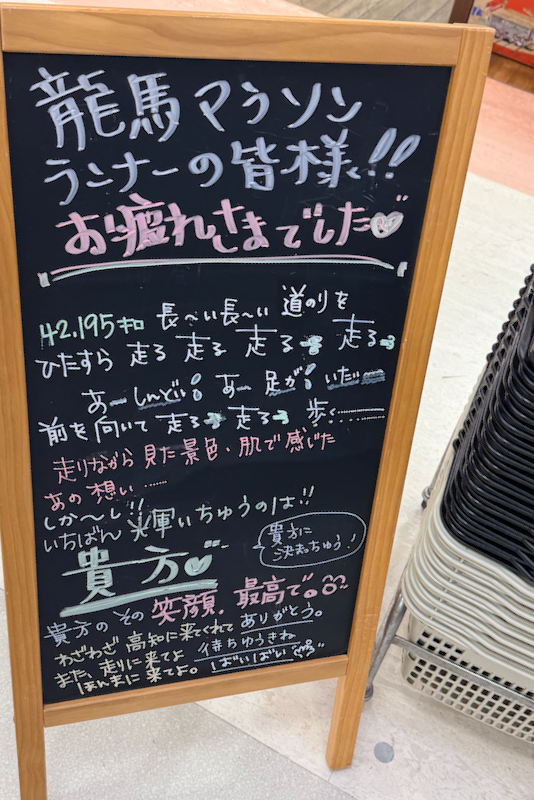 龍馬マラソン
ランナーの皆様!!
お疲れさまでした
42.195キロ 長〜い長〜い 道のりを
ひたすら 走る 走る 走る 走る
あーしんどい あー 足が いたい
前を向いて 走る 走る 歩く…………
走りながら 見た景色・肌で感じた
あの想い……
しか〜し!!
いちばん 輝いちゅうのは!!
貴方
貴方に
決まっちゅう!
貴方の その 笑顔. 最高で。
わざわざ 高知に来てくれて ありがとう。
また、走りに来てよ 待ちゅうきね
ほんまに 来てよ。 ばいばい